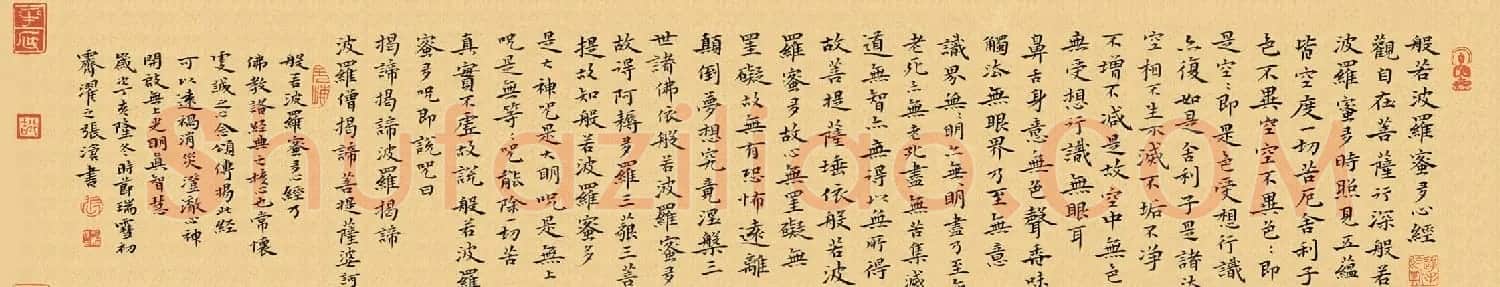 般若波羅蜜多心經
觀自在菩薩行深般若
波羅蜜多時照見五蘊
皆空度一切苦厄舍利子
色不異空空不異色:即
是空:即是色受想行識
亦復如是舍利子是諸法
空相不生不滅不垢不淨
不增不減是故空中無色
無受想行識無眼耳
鼻舌身意無色聲香味
觸法無眼界乃至無意
識界無:明亦無:明盡乃至無
老死亦無老死盡無苦集滅
道無智亦無得以無所得
故菩提薩埵依般若波
羅蜜多故心無罣礙無
罣礙故無有恐怖遠離
顛倒夢想究竟涅槃三
世諸佛依般若波羅蜜多
故得阿耨多羅三藐三菩
提故知般若波羅蜜多
是大神咒是大明咒是無上
咒是無等:咒能除切苦
真實不虛故說般若波羅
蜜多咒即說咒曰
揭諦揭諦波羅揭諦
波羅僧揭諦菩提薩婆訶
般若波羅蜜多心經乃
佛教諸經典之核心也常懷
虔誠之心念頌傳揚此經
可以遠禍消災澄澈心神
開啟無上光明真智慧
歲次丁亥隆冬時節瑞雪初
霽濯之張滄書
Shufaziliao.COM